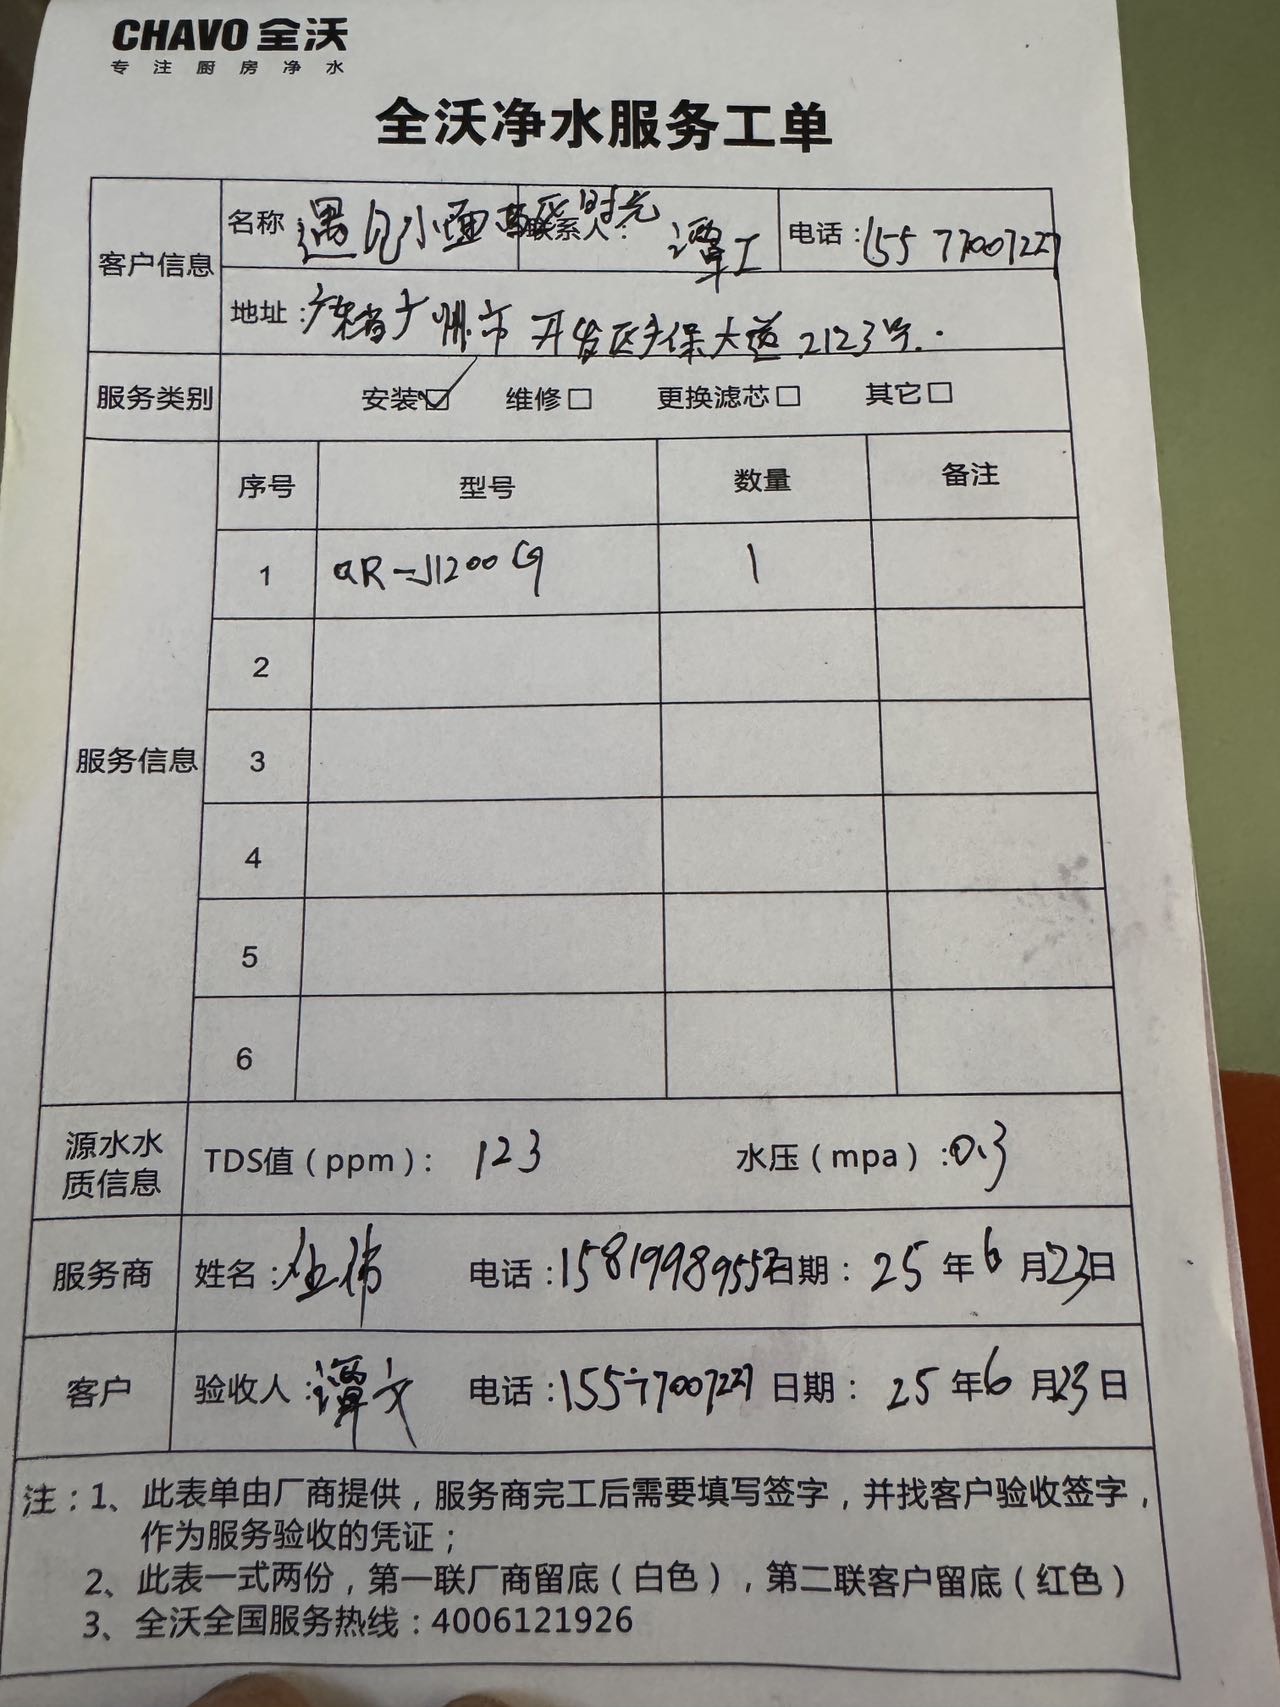 CHAVO 全沃
专注厨房净水
全沃净水服务工单
客户信息
名称 遇见小面 时光 联系人: 谭工 电话: 15577007227
地址: 广东省广州市开发区开保大道2123号.
服务类别 安装☑ 维修□ 更换滤芯□ 其它□
服务信息
序号 型号 数量 备注
1 QR-J1200G 1
2
3
4
5
6
源水水质信息 TDS值(ppm): 123 水压(mpa): 0.3
服务商 姓名: 伟 电话: 日期: 25年6月23日
客户 验收人: 谭文 电话: 15577007227 日期: 25年6月23日
注:1、此表单由厂商提供,服务商完工后需要填写签字,并找客户验收签字,
作为服务验收的凭证;
2、此表一式两份,第一联厂商留底(白色),第二联客户留底(红色)
3、全沃全国服务热线:4006121926